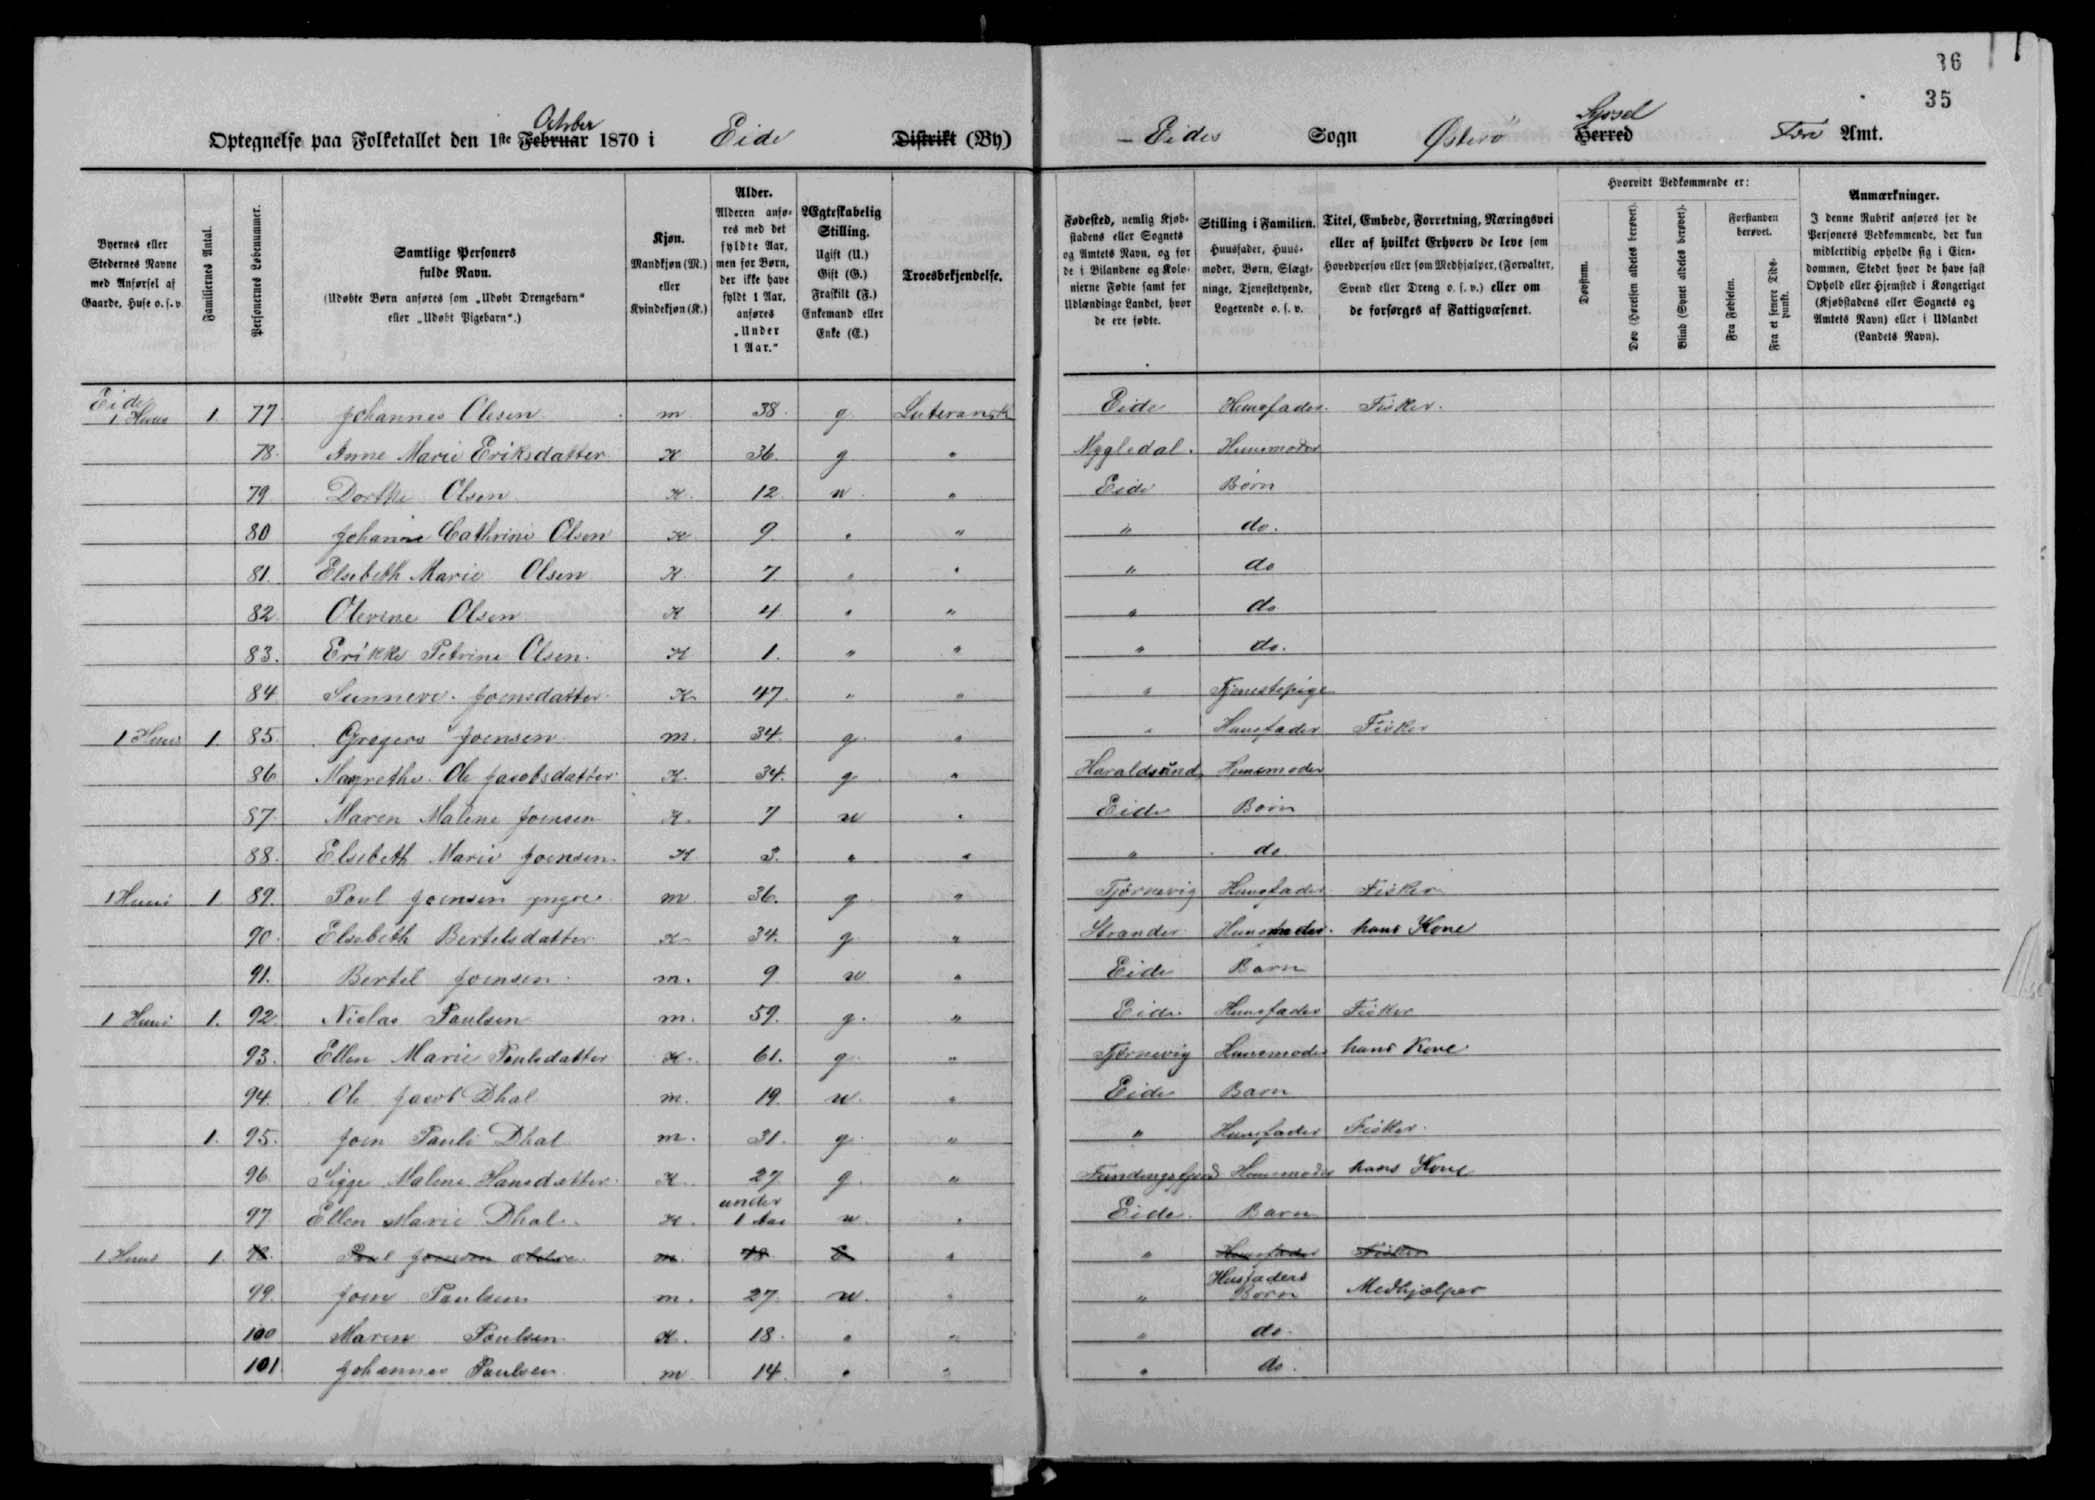 36
35
Optegnelse paa Folketallet den 1ste Februar October 1870 i Eide Distrikt (By) - Eides Sogn Østerø Herred Syssel Færø Amt.
Byernes eller Stedernes Navne med Anførsel af Gaarde, Huse o. s. v.
Familiernes Antal.
Personernes Løbenummer.
Samtlige Personers fulde Navn.
(Udøbte Børn anføres som „Udøbt Drengebarn“ eller „Udøbt Pigebarn“.)
Kjøn.
Mandkjøn (M.) eller Kvindekjøn (K.)
Alder.
Alderen anføres med det fyldte Aar, men for Børn, der ikke have fyldt 1 Aar, anføres „Under 1 Aar.“
Ægteskabelig Stilling.
Ugift (U.) Gift (G.) Fraskilt (F.) Enkemand eller Enke (E.)
Troesbekjendelse.
Fødested, nemlig Kjøbstadens eller Sognets og Amtets Navn, og for de i Bilandene og Kolonierne Fødte samt for Udlændinge Landet, hvor de ere fødte.
Stilling i Familien.
Huusfader, Huusmoder, Børn, Slægtninge, Tjenestetyende, Logerende o. s. v.
Titel, Embede, Forretning, Næringsvei eller af hvilket Erhverv de leve som Hovedperson eller som Medhjælper, (Forvalter, Svend eller Dreng o. s. v.) eller om de forsørges af Fattigvæsenet.
Hvorvidt Vedkommende er:
Døvstum.
Døv (Hørelsen aldeles berøvet).
Blind (Synet aldeles berøvet).
Forstanden berøvet.
Fra Fødselen.
Fra et senere Tidspunkt.
Anmærkninger.
I denne Rubrik anføres for de Personers Vedkommende, der kun midlertidig opholde sig i Eiendommen, Stedet hvor de have fast Ophold eller Hjemsted i Kongeriget (Kjøbstadens eller Sognets og Amtets Navn) eller i Udlandet (Landets Navn).
Eide
1 Huus 1. 77. Johannes Olesen m 38. g. Luteransk Eide Huusfader. Fisker.
78. Anne Marie Eriksdatter K 36. g " Mygledal. Huusmoder
79. Dorthe Olsen K. 12 u " Eide Børn
80 Johanne Cathrine Olsen K 9. " " " do.
81. Elsebeth Marie Olsen K 7 " " " do
82. Olevine Olsen K 4 " " " do
83. Erikke Petrine Olsen. K 1. " " " do.
84 Sunneve. Joensdatter K. 47. " " " Tjenestepige
1 Huus 1. 85. Gregers Joensen m. 34. g. " " Huusfader Fisker
86 Magrethe. Ole Jacobsdatter K. 34. g " Haraldsund Huusmoder
87. Maren Malene Joensen K. 7 u " Eide Børn
88. Elsebeth Marie Joensen. K 3. " " " do
1 Huus 1 89. Poul Joensen yngre m 36. g " Tjørnevig Huusfader Fisker
90. Elsebeth Bertelsdatter K 34. g " Strander Huusmoder. hans Kone
91. Bertel Joensen m. 9 u " Eide Barn
1 Huus 1. 92. Niclas Poulsen m. 59. g. " Eide Huusfader Fisker
93. Ellen Marie Poulsdatter K. 61. g " Tjørnevig Huusmoder hans Kone
94. Ole Jacob Dhal m. 19. u. " Eide Barn
1. 95. Joen Pauli Dhal m. 31. g " " Huusfader Fisker.
96 Sigge Malene Hansdatter. K. 27 g. " Fundingsfjord Huusmoder hans Kone
97 Ellen Marie Dhal. K. under 1 Aar u. " Eide. Barn
1 Huus 1. 98. Poul Joensen ældre m. 78 E " " Huusfader Fisker
99. Joen Poulsen m. 27. u. " " Husfaders Børn Medhjælper
100 Maren Poulsen K. 18. " " " do.
101 Johannes Poulsen m 14. " " " do.